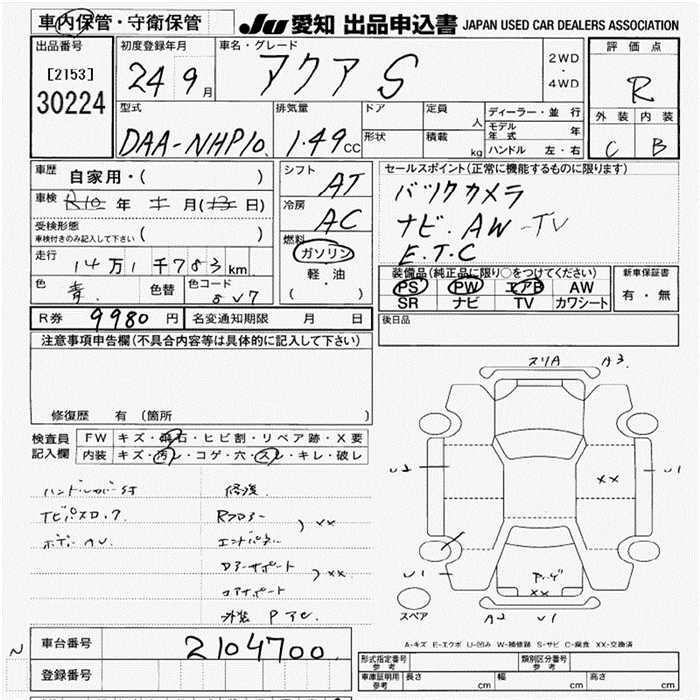 車内保管・守衛保管
JU 愛知 出品申込書 JAPAN USED CAR DEALERS ASSOCIATION
出品番号
[2153]
30224
初度登録年月
24 9月
車名・グレード
アクア S
2WD
・
4WD
評価点
R
外装 内装
C B
型式
DAA-NHP10.
排気量
1.49CC
ドア
定員
人
形状
積載
kg
ディーラー・並行
モデル年式 年
ハンドル 左・右
車歴
自家用・( )
車検
R10 年 土 月(13日)
受検形態
車検付きのみ記入して下さい ( )
走行
14万1千783km
色
青.
色替
色コード
8V7
シフト
AT
冷房
AC
燃料
ガソリン
・
軽・油
( )
セールスポイント(正常に機能するものに限ります)
バックカメラ
ナビ.AW-TV
E.T.C
装備品(純正品に限り○をつけてください)
PS PW エアB AW
SR ナビ TV カワシート
新車保証書
有・無
後日品
R券 9980円
名変通知期限 月 日
注意事項申告欄(不具合内容等は具体的に記入して下さい)
修復歴 有(箇所 )
検査員
記入欄
FW キズ・飛石・ヒビ割・リペア跡・X要
内装 キズ・汚レ・コゲ・穴・スレ・キレ・破レ
修復.
Rフロアー
エンドパネル
××
××
外装 P
スリA A3
U2
U1
××
××
U1
A2 U1
スペア
A-キズ E-エクボ U-凹み W-補修跡 S-サビ C-腐食 ××-交換済
車台番号
2104700
登録番号
形式指定番号
参考
類別区分番号
参考
車庫証明用
参考
長さ cm
幅 cm
高さ cm